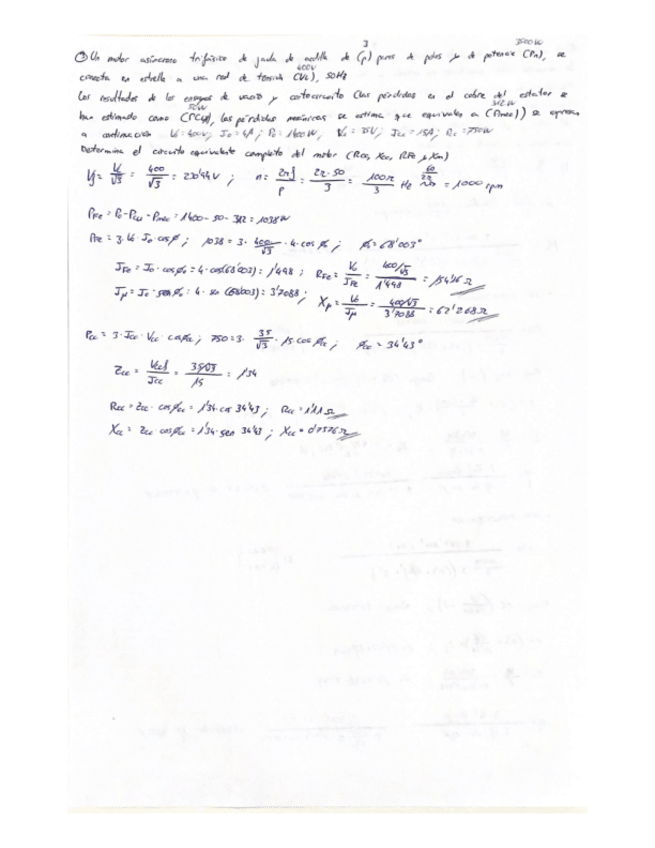 3 3500 W
① Un motor asíncrono trifásico de jaula de ardilla de (p) pares de polos y de potencia (Pn), se
400V
conecta en estrella a una red de tensión (VL), 50Hz
Los resultados de los ensayos de vacío y cortocircuito (las pérdidas en el cobre del estator se
50W 312W
han estimado como (PCu1), las pérdidas mecánicas se estima que equivalen a (Pmec)) se
a continuación V0 = 400V; J0 = 4A; P0 = 1400W, Vcc = 35V; Jcc = 15A; Pcc = 750W
Determina el circuito equivalente completo del motor (Rcc, Xcc, RFe y Xm)
Vf = VL/√3 = 400/√3 = 230'94V ; n = 2πf/p = 2π·50/3 = 100π/3 Hz 60/2π = 1000 rpm
PFe = P0 - PCu - Pmec = 1400 - 50 - 312 = 1038W
PFe = 3·V0·J0·cosφ ; 1038 = 3·400/√3·4·cosφ0 ; φ0 = 68'003°
JFe = J0·cosφ0 = 4·cos(68'003) = 1'498 ; RFe = V0/JFe = 400/√3/1'498 = 154'16 Ω
Jμ = J0·senφ0 = 4·sen(68'003) = 3'7088 ; Xμ = V0/Jμ = 400/√3/3'7088 = 62'268 Ω
Pcc = 3·Jcc·Vcc·cosφcc ; 750 = 3·35/√3·15·cosφcc ; φcc = 34'43°
Zcc = Vccf/Jcc = 35/√3/15 = 1'34
Rcc = Zcc·cosφcc = 1'34·cos 34'43 ; Rcc = 1'11 Ω
Xcc = Zcc·cosφcc = 1'34·sen 34'43 ; Xcc = 0'7576 Ω